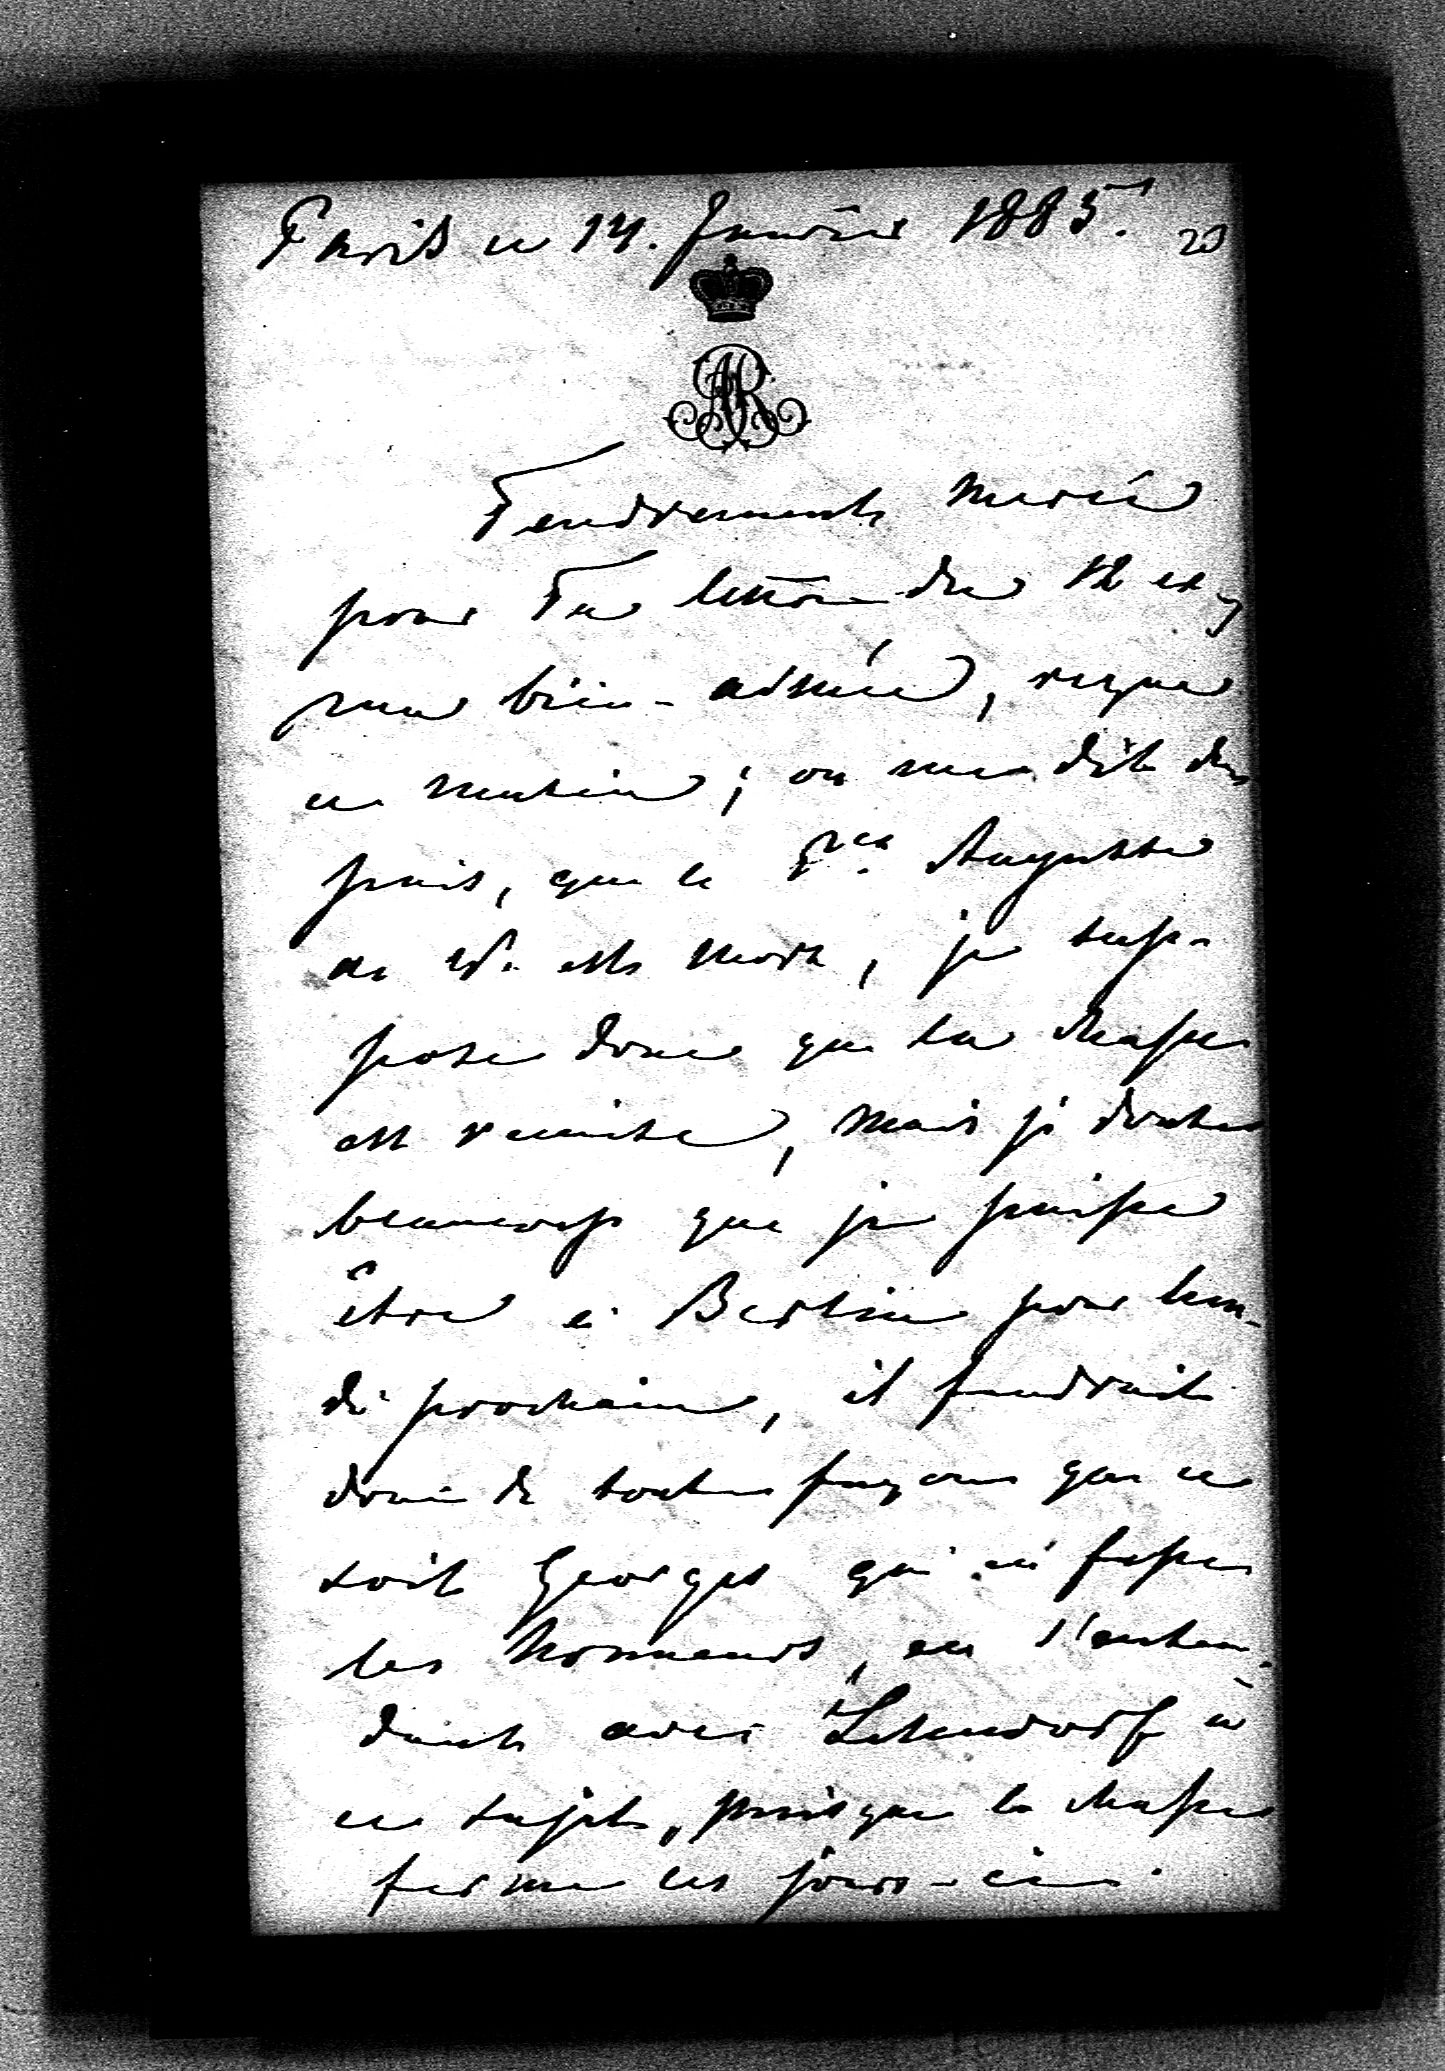 Paris ce 14. Janvier 1885.
20
AR
Tendrement merci
pour Ta lettre du 12 et
ma bien-aimée, reçue
ce matin; on me dit de-
puis, que le Pce. Auguste
de W. est mort, je sup-
pose donc que la chasse
est remise, mais je doute
beaucoup que je puisse
être à Berlin pour lun-
di prochain, il faudrait
donc de toutes façons que ce
soit Georges qui en fasse
les honneurs, en s'enten-
dant avec Lehndorf à
ce sujet, puisque la chasse
ferme ces jours-ci.